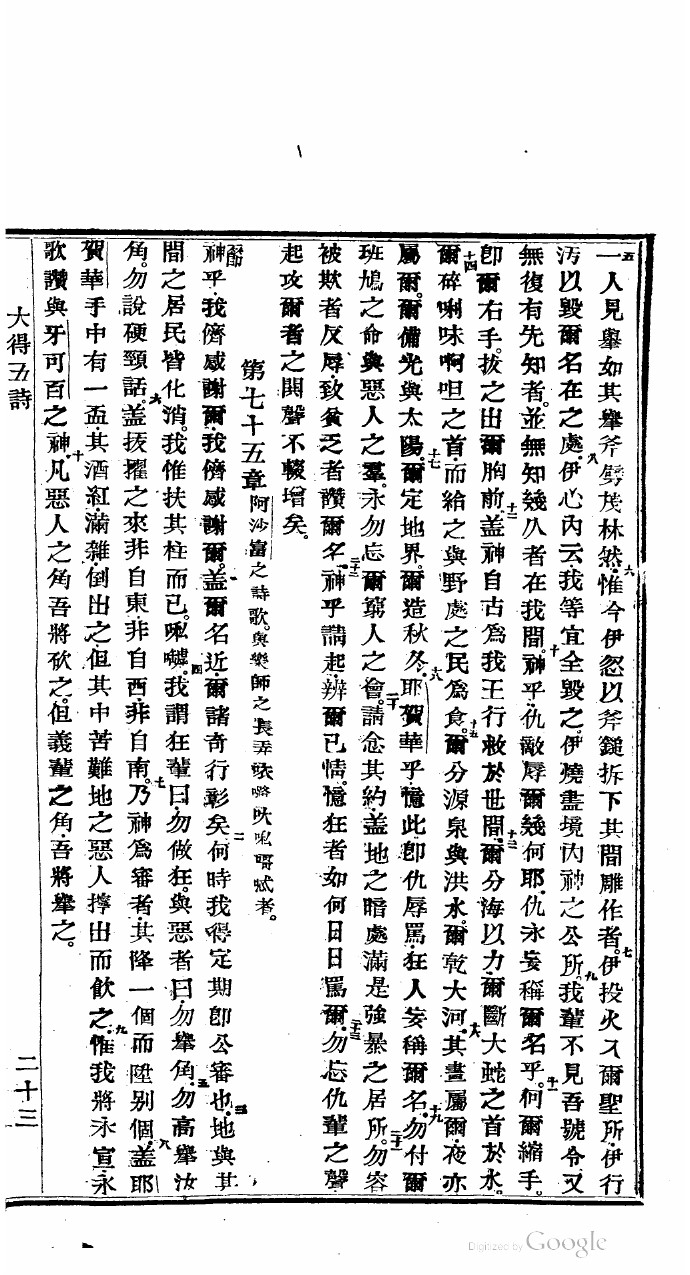 五一人見舉如其舉斧劈茂林然六惟今伊忽以斧鎚拆下其間雕作者七伊投火入爾聖所伊行
汚以毀爾名在之處八伊心內云我等宜全毀之伊燒盡境內神之公所九我輩不見吾號令又
無復有先知者並無知幾久者在我間十神乎仇敵辱爾幾何耶仇永妄稱爾名乎十一何爾縮手
卽爾右手拔之出爾胸前十二蓋神自古爲我王行救於世間十三爾分海以力爾斷大蛇之首於水
十四爾碎唎味啊呾之首而給之與野處之民爲食十五爾分源泉與洪水爾乾大河十六其晝屬爾夜亦
屬爾爾備光與太陽十七爾定地界爾造秋冬十八耶賀華乎憶此卽仇辱罵狂人妄稱爾名十九勿付爾
班鳩之命與惡人之羣永勿忘爾窮人之會二十請念其約蓋地之暗處滿是強暴之居所二十一勿容
被欺者反辱致貧乏者讚爾名二十二神乎請起辨爾已情憶狂者如何日日罵爾二十三勿忘仇輩之聲
起攻爾者之閧聲不輟增矣
第七十五章 阿沙富之詩歌與樂師之長弄
神乎我儕感謝爾我儕感謝爾蓋爾名近爾諸奇行彰矣二何時我得定期卽公審也三地與其
間之居民皆化消我惟扶其柱而已四我謂狂輩曰勿做狂與惡者曰勿舉角五勿高舉汝
角勿說硬頸話六蓋抜擢之來非自東非自西非自南七乃神爲審者其降一個而陞別個八蓋耶
賀華手中有一盃其酒紅滿雜倒出之但其中苦難地之惡人搾出而飮之九惟我將永宣永
歌讚與牙可百之神十凡惡人之角吾將砍之但義輩之角吾將舉之
大得五詩
二十三
Digitized by Google